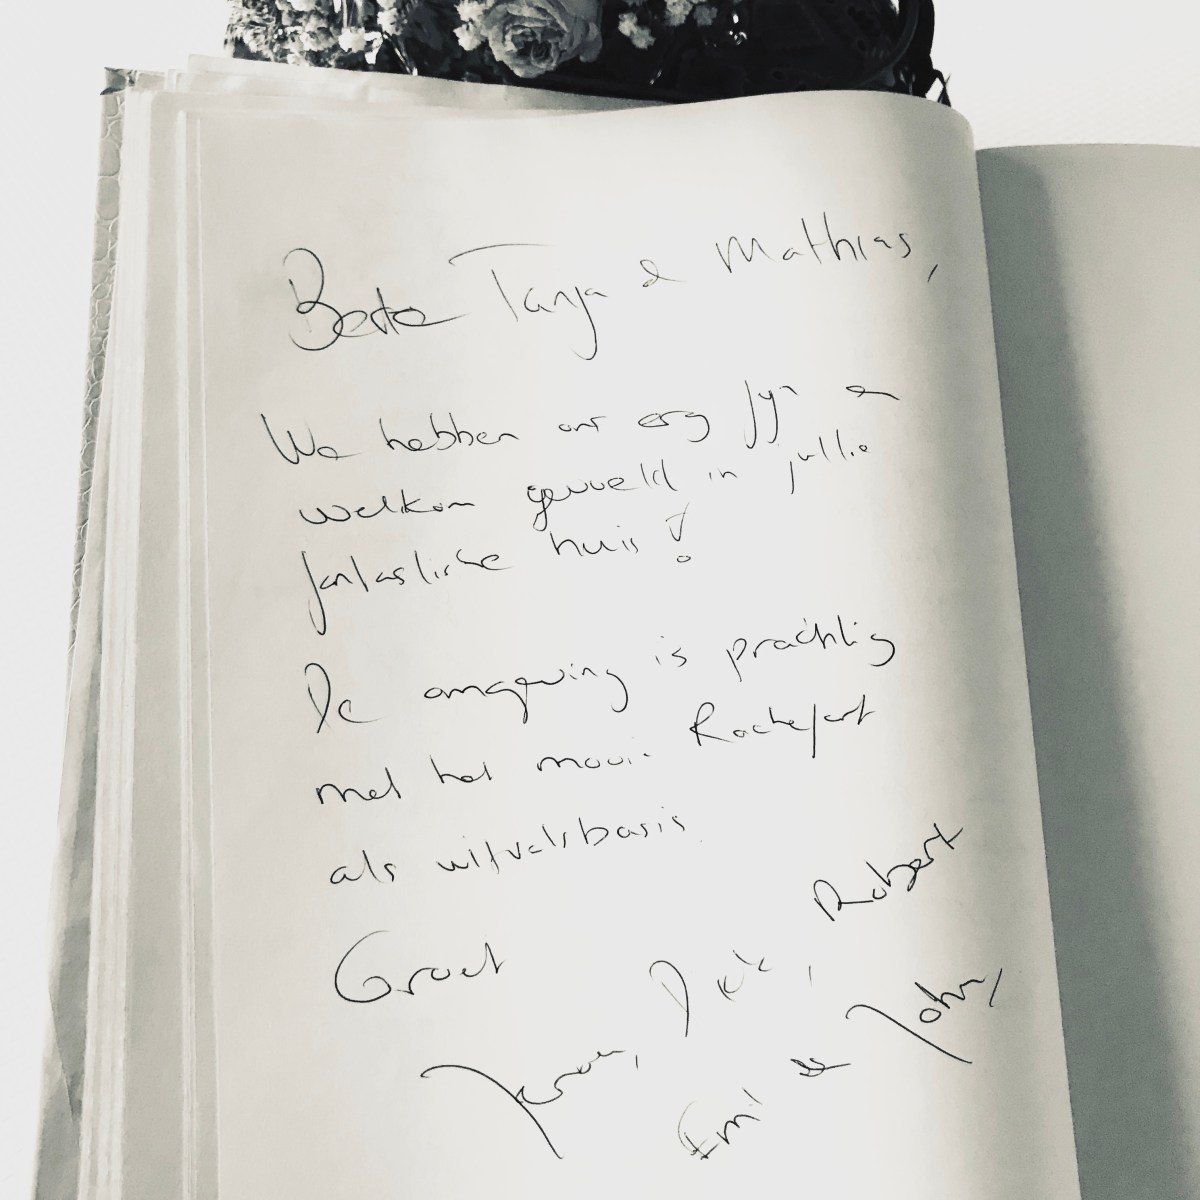 Beste Tanja & Mathias,
We hebben ons erg fijn en
welkom gevoeld in jullie
fantastische huis!
De omgeving is prachtig
met het mooie Rochefort
als uitvalsbasis
Groet
Robert
Emil & John,